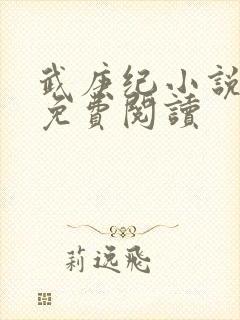 武庚纪小說
免費閱讀
莉逸飛